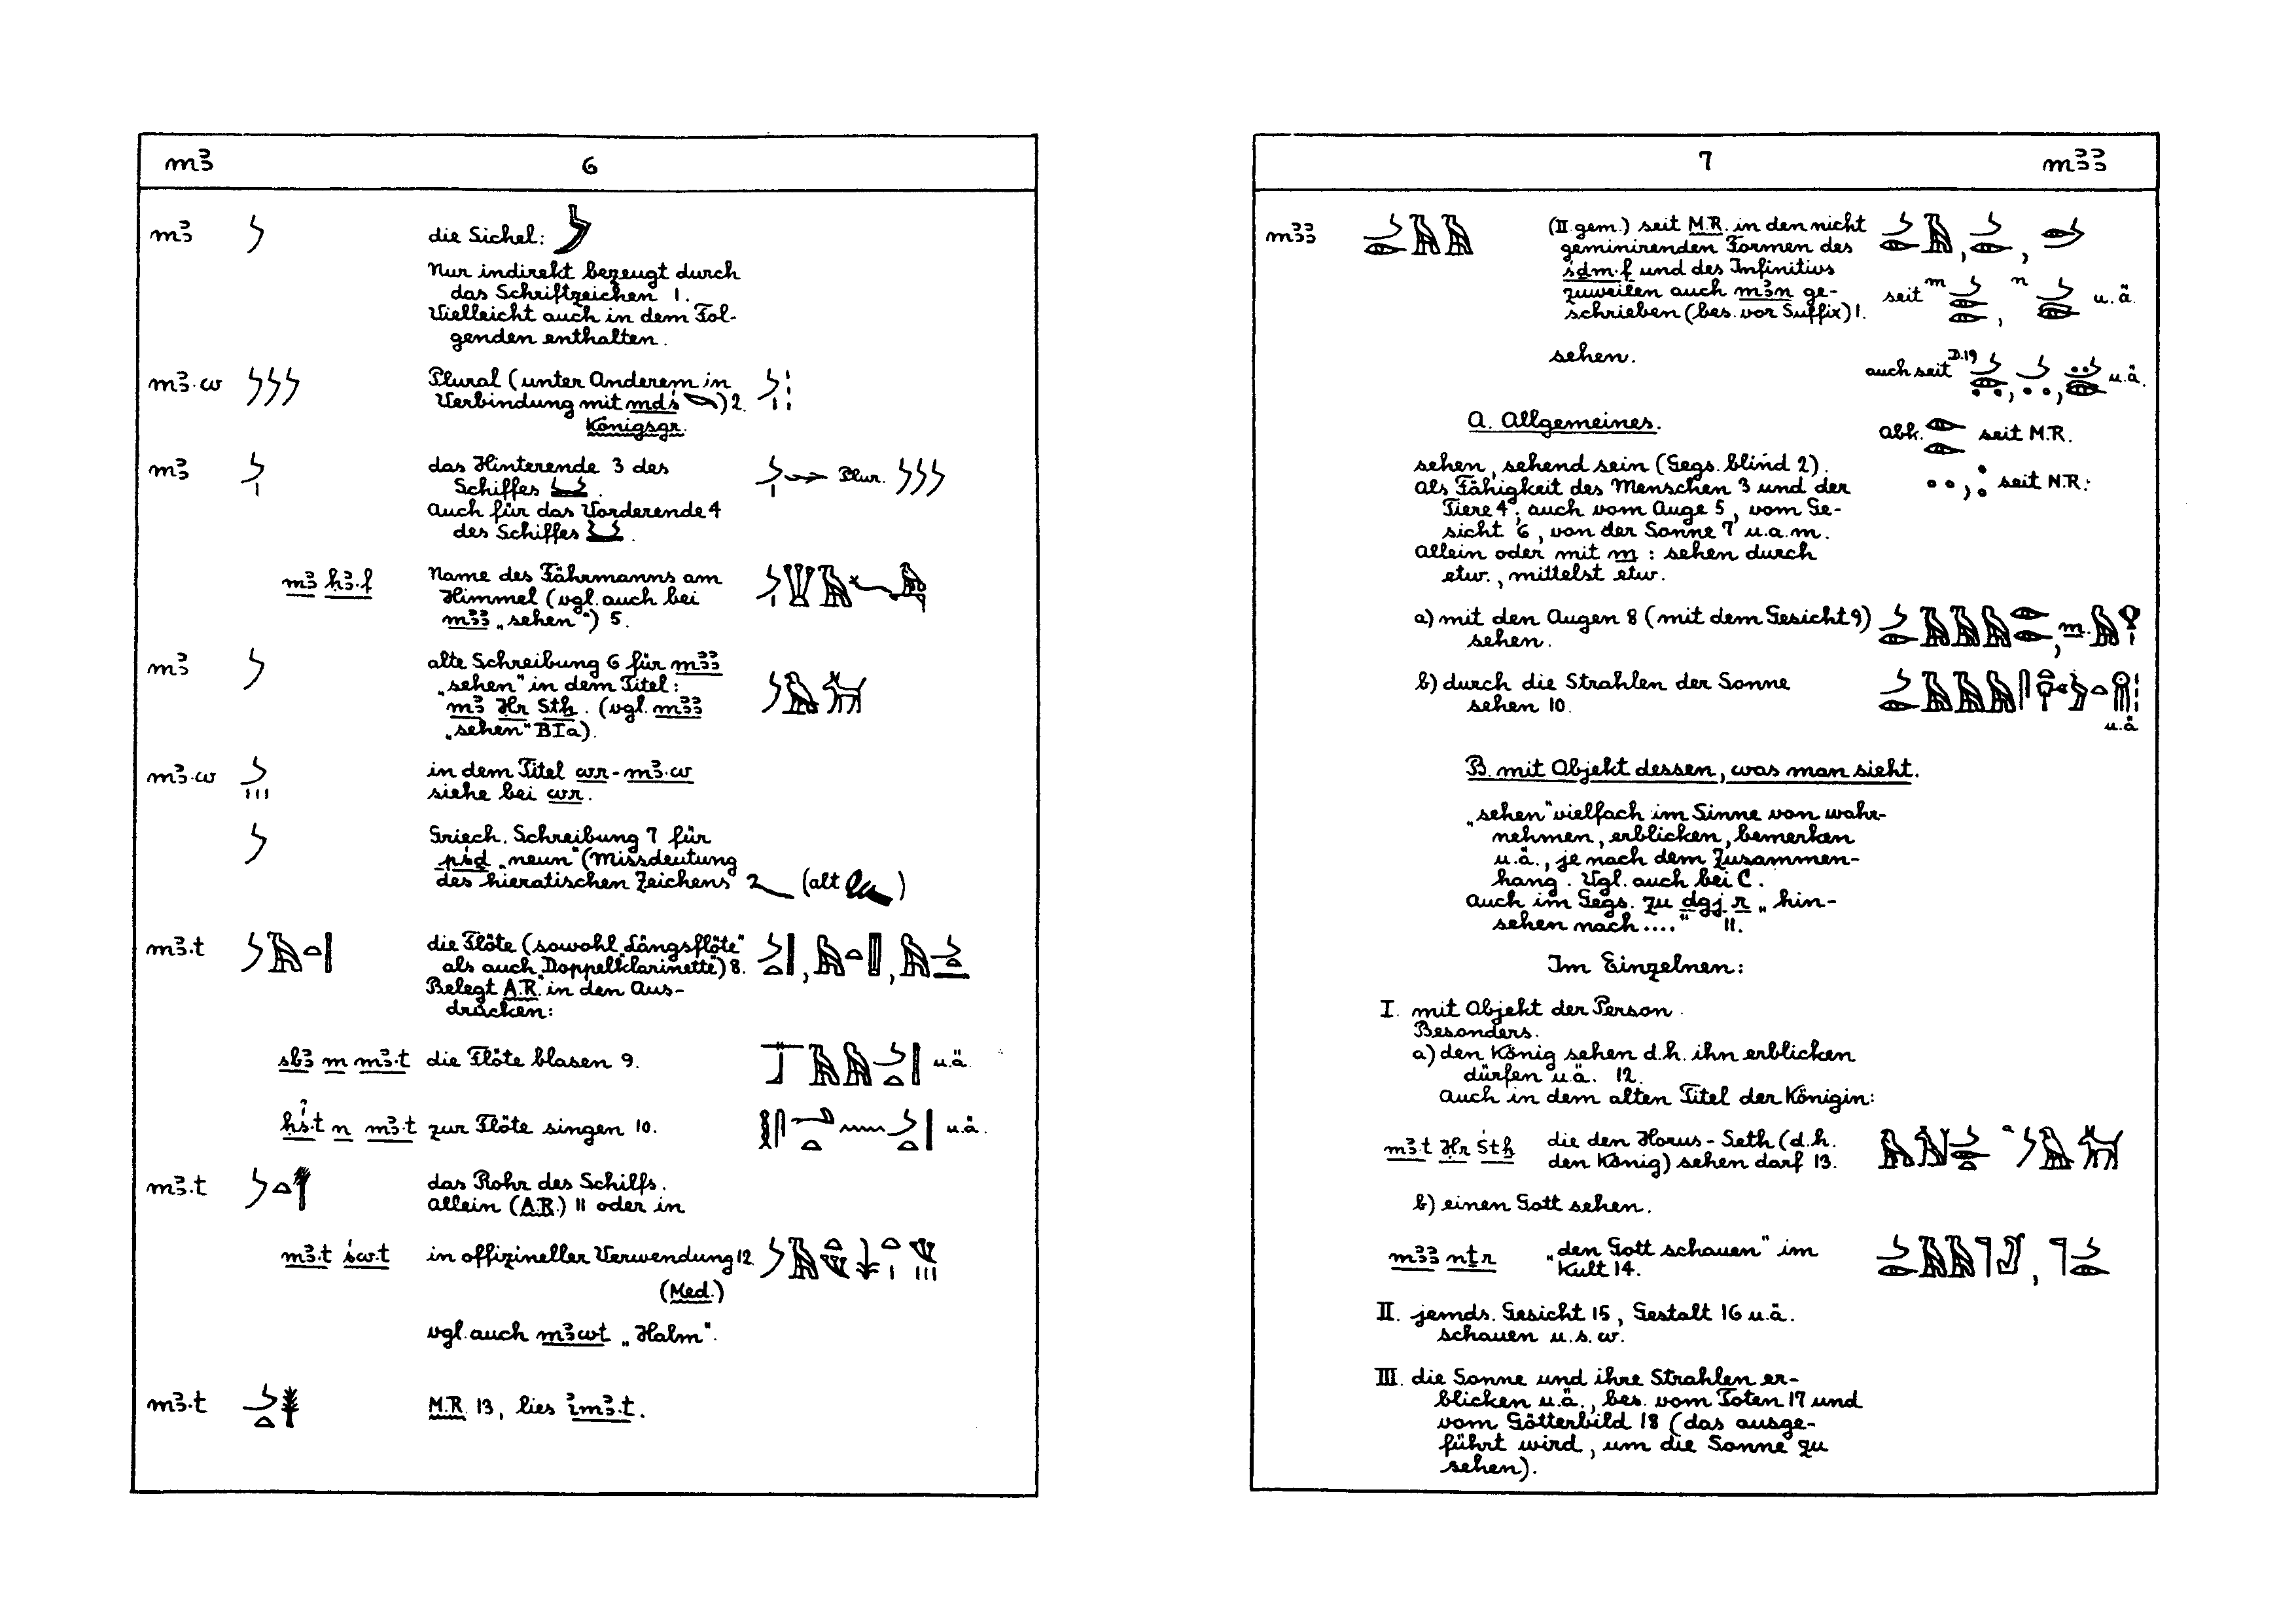 mꜣ 6
mꜣ die Sichel:
Nur indirekt bezeugt durch
das Schriftzeichen 1.
Vielleicht auch in dem Fol-
genden enthalten.
mꜣ·w Plural (unter Anderem in
Verbindung mit mdś ) 2.
Königsgr.
mꜣ das Hinterende 3 des Plur.
Schiffes .
Auch für das Vorderende 4
des Schiffes .
mꜣ ḥꜣ·f Name des Fährmanns am
Himmel (vgl. auch bei
mꜣꜣ „sehen“) 5.
mꜣ alte Schreibung 6 für mꜣꜣ
„sehen“ in dem Titel:
mꜣ Ḥr Stẖ. (vgl. mꜣꜣ
„sehen“ B I a).
mꜣ·w in dem Titel wr-mꜣ·w
siehe bei wr.
Griech. Schreibung 7 für
pśḏ „neun“ (Missdeutung
des hieratischen Zeichens (alt )
mꜣ·t die Flöte (sowohl „Längsflöte“
als auch „Doppelklarinette“) 8.
Belegt A.R. in den Aus-
drücken:
sbꜣ m mꜣ·t die Flöte blasen 9. u.ä.
ḥśỉ·t n mꜣ·t zur Flöte singen 10. u.ä.
mꜣ·t das Rohr des Schilfs.
Allein (A.R.) 11 oder in
mꜣ·t św·t in offizineller Verwendung 12.
(Med.)
vgl. auch mꜣwt „Halm“.
mꜣ·t M.R. 13, lies ỉmꜣ·t.
7 mꜣꜣ
mꜣꜣ (II gem.) seit M.R. in den nicht
geminirenden Formen des
śḏm·f und des Infinitivs
zuweilen auch mꜣn ge- seit m n u.ä.
schrieben (bes. vor Suffix) 1.
sehen. auch seit D.19 u.ä.
A. Allgemeines. Abk. seit M.R.
sehen, sehend sein (Gegs. blind 2).
Als Fähigkeit des Menschen 3 und der seit N.R.:
Tiere 4; auch vom Auge 5, vom Ge-
sicht 6, von der Sonne 7 u.a.m.
Allein oder mit m : sehen durch
etw., mittelst etw.
a) mit den Augen 8 (mit dem Gesicht 9) m.
sehen.
b) durch die Strahlen der Sonne
sehen 10. u.ä
B. mit Objekt dessen, was man sieht.
„sehen“ vielfach im Sinne von wahr-
nehmen, erblicken, bemerken
u.ä., je nach dem Zusammen-
hang. Vgl. auch bei C.
Auch im Gegs. zu dgj r „hin-
sehen nach ....“ 11.
Im Einzelnen:
I. mit Objekt der Person.
Besonders.
a) den König sehen d.h. ihn erblicken
dürfen u.ä. 12.
Auch in dem alten Titel der Königin:
mꜣ·t Ḥr Stẖ die den Horus-Seth (d.h. a
den König) sehen darf 13.
b) einen Gott sehen.
mꜣꜣ nṯr „den Gott schauen“ im
Kult 14.
II. jemds. Gesicht 15, Gestalt 16 u.ä.
schauen u.s.w.
III. die Sonne und ihre Strahlen er-
blicken u.ä., bes. vom Toten 17 und
vom Götterbild 18 (das ausge-
führt wird, um die Sonne zu
sehen).